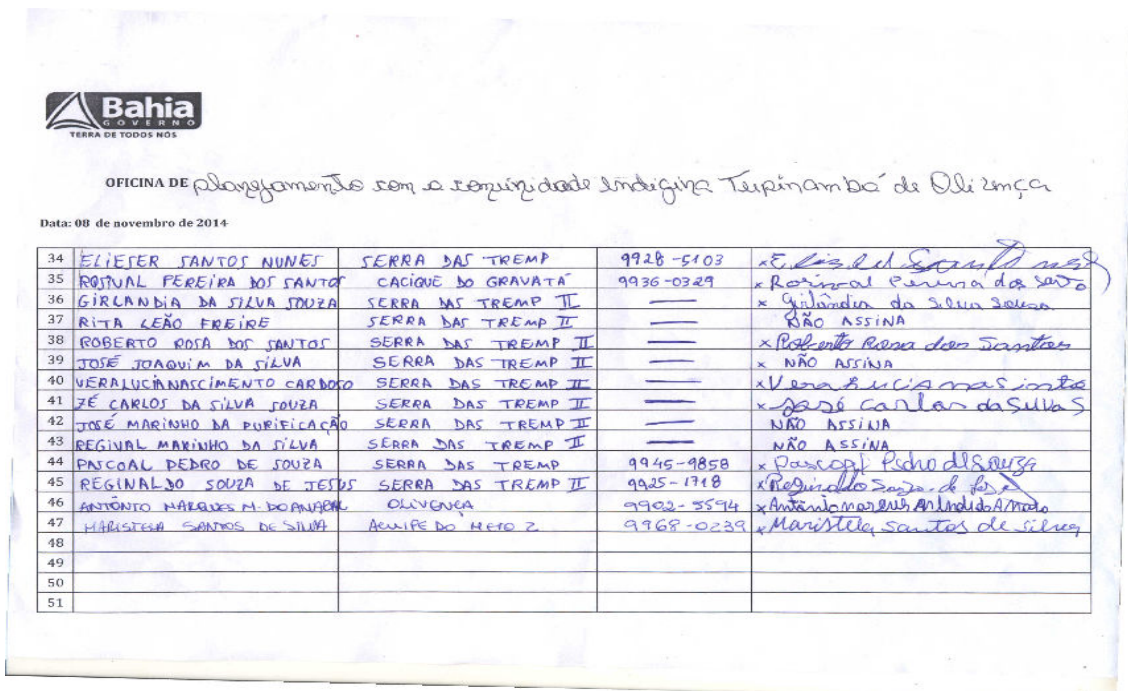 Bahia
GOVERNO
TERRA DE TODOS NÓS
OFICINA DE planejamento com a comunidade indigina Tupinambá de Olivença
Data: 08 de novembro de 2014
34 ELIESER SANTOS NUNES SERRA DAS TREMP 9928-5103 x
35 ROSIVAL PEREIRA DOS SANTOS CACIQUE DO GRAVATÁ 9936-0329 x Rosival Pereira dos Santo
36 GIRLANDIA DA SILVA SOUZA SERRA DAS TREMP II — x Girlândia da Silva Sousa
37 RITA LEÃO FREIRE SERRA DAS TREMP II — NÃO ASSINA
38 ROBERTO ROSA DOS SANTOS SERRA DAS TREMP II — x Roberto Rosa dos Santos
39 JOSÉ JOAQUIM DA SILVA SERRA DAS TREMP II — x NÃO ASSINA
40 VERALUCIANASCIMENTO CARDOSO SERRA DAS TREMP II — x Vera Lucia nascinto
41 ZÉ CARLOS DA SILVA SOUZA SERRA DAS TREMP II — x José Carlos da Silva S
42 JOSÉ MARINHO DA PURIFICAÇÃO SERRA DAS TREMP II — NÃO ASSINA
43 REGIVAL MARINHO DA SILVA SERRA DAS TREMP II — NÃO ASSINA
44 PASCOAL PEDRO DE SOUZA SERRA DAS TREMP 9945-9858 x Pascoal Pedro de Souza
45 REGINALDO SOUZA DE JESUS SERRA DAS TREMP II 9925-1718 x Reginaldo Souza de
46 ANTÔNIO MARQUES M. DO AMARAL OLIVENÇA 9902-5594 x Antônio
47 MARISTELA SANTOS DE SILVA 9968-0239 x Maristela santos de silva
48
49
50
51